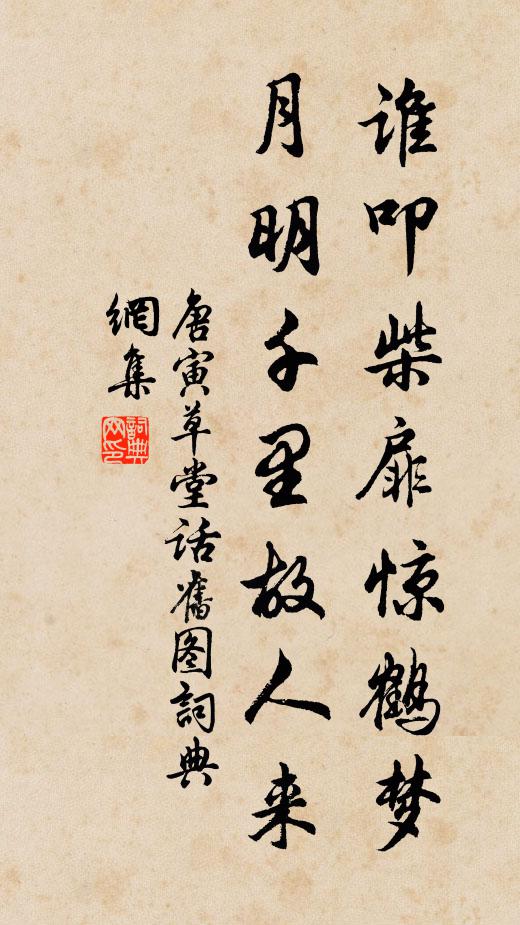 谁叩柴扉惊鹤梦
月明千里故人来
唐寅草堂话舊图詞典
網集
詞典
网印